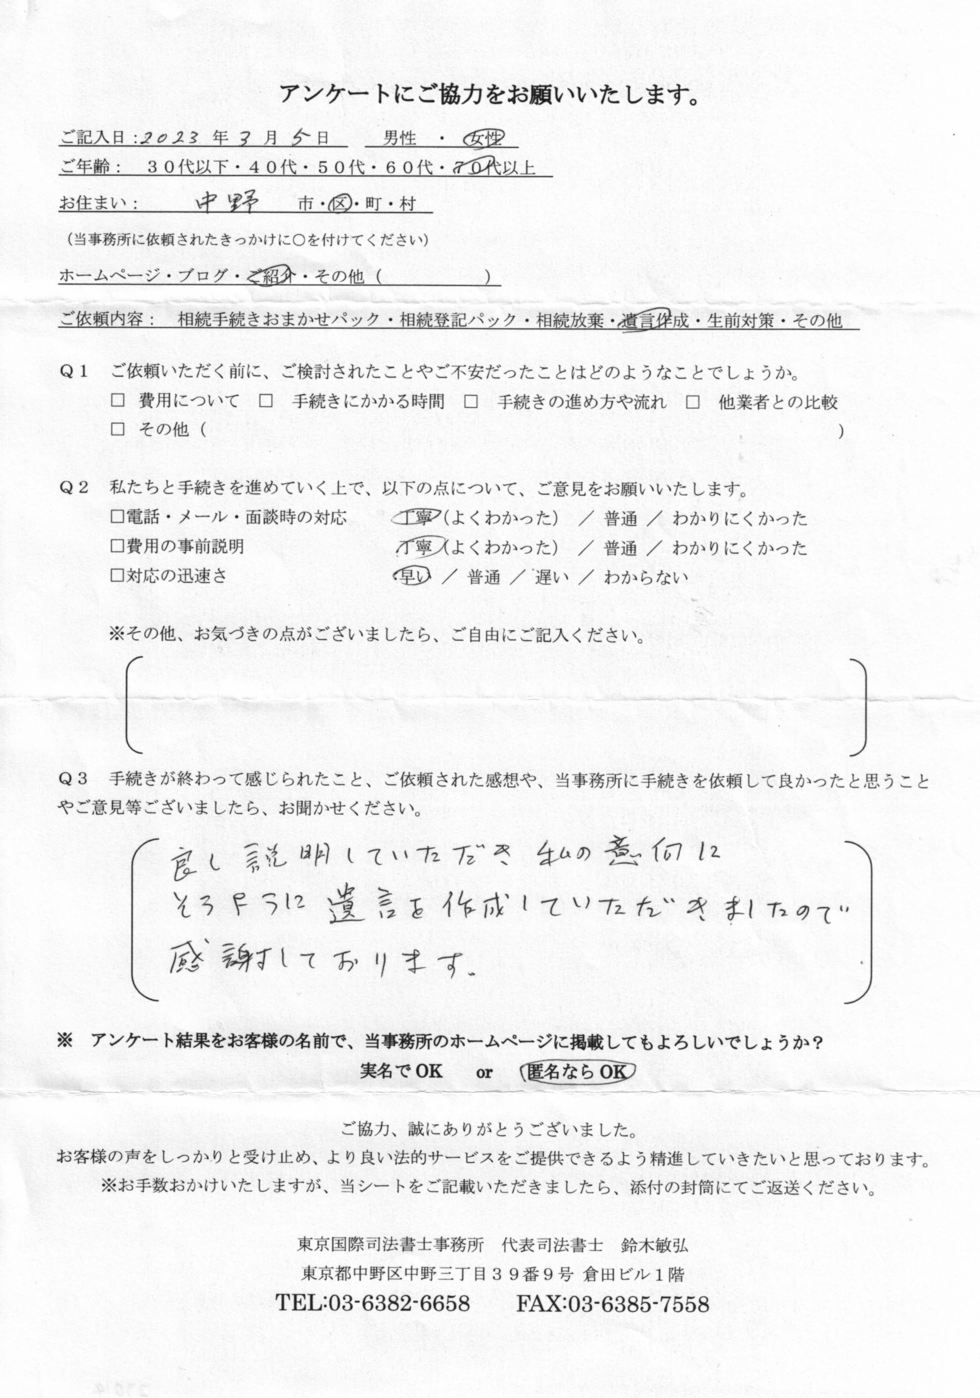 アンケートにご協力をお願いいたします。
ご記入日：2023 年 3 月 5 日　男性 ・ 女性
ご年齢：　３０代以下・４０代・５０代・６０代・７０代以上
お住まい：　中野　市・区・町・村
（当事務所に依頼されたきっかけに〇を付けてください）
ホームページ・ブログ・ご紹介・その他（　　　　　　）
ご依頼内容：　相続手続きおまかせパック・相続登記パック・相続放棄・遺言作成・生前対策・その他
Ｑ１　ご依頼いただく前に、ご検討されたことやご不安だったことはどのようなことでしょうか。
□ 費用について　□　手続きにかかる時間　□　手続きの進め方や流れ　□　他業者との比較
□ その他（　　　　　　　　　　　　　　　　　　　　）
Ｑ２　私たちと手続きを進めていく上で、以下の点について、ご意見をお願いいたします。
□電話・メール・面談時の対応　丁寧（よくわかった）　／ 普通 ／ わかりにくかった
□費用の事前説明　丁寧（よくわかった）　／ 普通 ／ わかりにくかった
□対応の迅速さ　早い ／ 普通 ／ 遅い ／ わからない
※その他、お気づきの点がございましたら、ご自由にご記入ください。
Ｑ３　手続きが終わって感じられたこと、ご依頼された感想や、当事務所に手続きを依頼して良かったと思うこと
やご意見等ございましたら、お聞かせください。
良し説明していただき 私の意向に
そうように遺言を作成していただきましたので
感謝しております。
※　アンケート結果をお客様の名前で、当事務所のホームページに掲載してもよろしいでしょうか？
実名で OK　or　匿名なら OK
ご協力、誠にありがとうございました。
お客様の声をしっかりと受け止め、より良い法的サービスをご提供できるよう精進していきたいと思っております。
※お手数おかけいたしますが、当シートをご記載いただきましたら、添付の封筒にてご返送ください。
東京国際司法書士事務所　代表司法書士　鈴木敏弘
東京都中野区中野三丁目３９番９号 倉田ビル１階
TEL:03-6382-6658　FAX:03-6385-7558